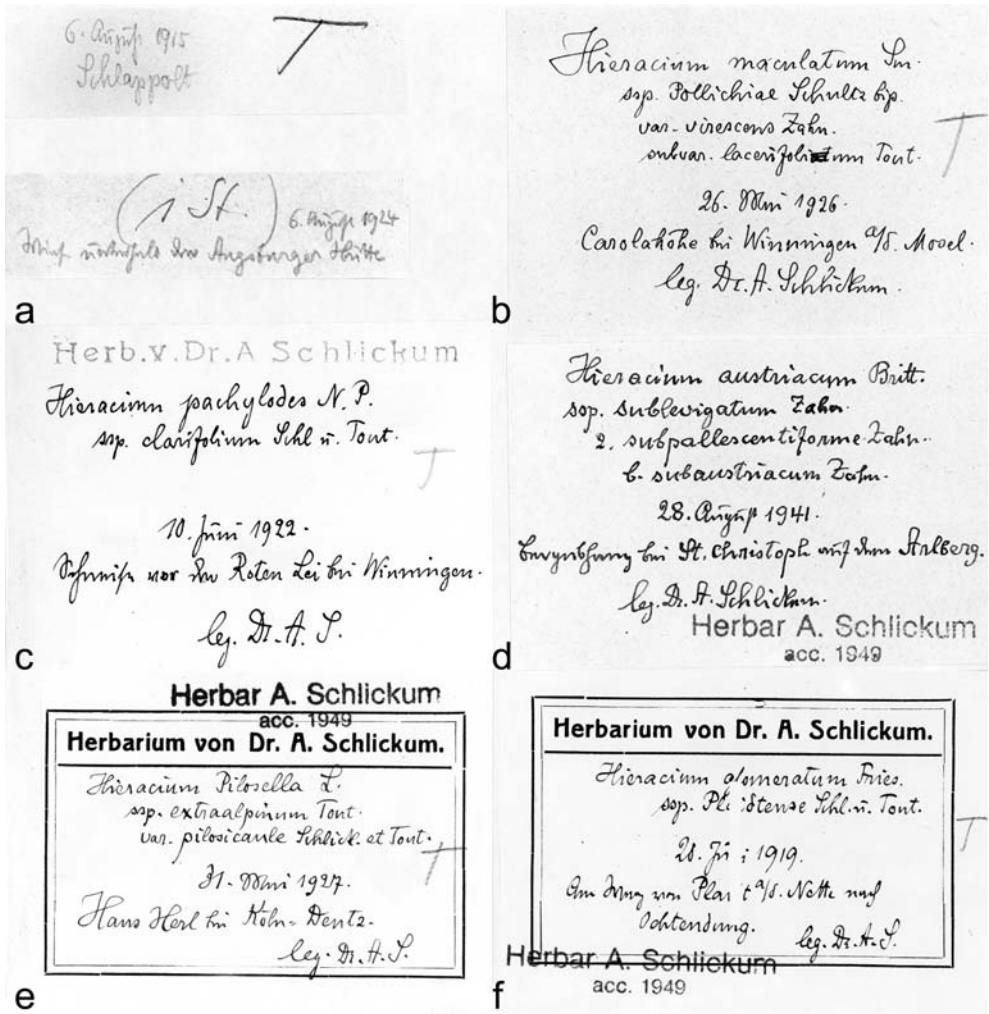 6. August 1915
T
Schlappolt
(1 St.)
6. August 1924
unterhalb der Augsburger Hütte
a
Hieracium maculatum Sm.
ssp. Pollichiae Schultz bip.
var. virescens Zahn.
subvar. lacerifolium Tout.
T
26. Mai 1926.
Carolahöhe bei Winningen a/d. Mosel.
leg. Dr. A. Schlickum.
b
Herb. v. Dr. A Schlickum
Hieracium pachylodes N. P.
ssp. clarifolium Schl u. Tout.
T
10. Juni 1922.
Schneise vor der Roten Lei bei Winningen.
leg. Dr. A. S.
c
Hieracium austriacum Britt.
ssp. sublevigatum Zahn.
2. subpallescentiforme Zahn.
b. subaustriacum Zahn.
28. August 1941.
bei St. Christoph auf dem Arlberg.
leg. Dr. A. Schlickum.
Herbar A. Schlickum
acc. 1949
d
Herbar A. Schlickum
acc. 1949
Herbarium von Dr. A. Schlickum.
Hieracium Pilosella L.
ssp. extraalpinum Tout.
var. pilosicaule Schlick. et Tout.
T
31. Mai 1927.
Haus Herl bei Köln-Deutz.
leg. Dr. A. S.
e
Herbarium von Dr. A. Schlickum.
Hieracium glomeratum Fries.
ssp. Pl idtense Schl. u. Tout.
T
28. Ju i 1919.
Am Weg von Plai t a/d. Nette nach
Ochtendung.
leg. Dr. A. S.
Herbar A. Schlickum
acc. 1949
f